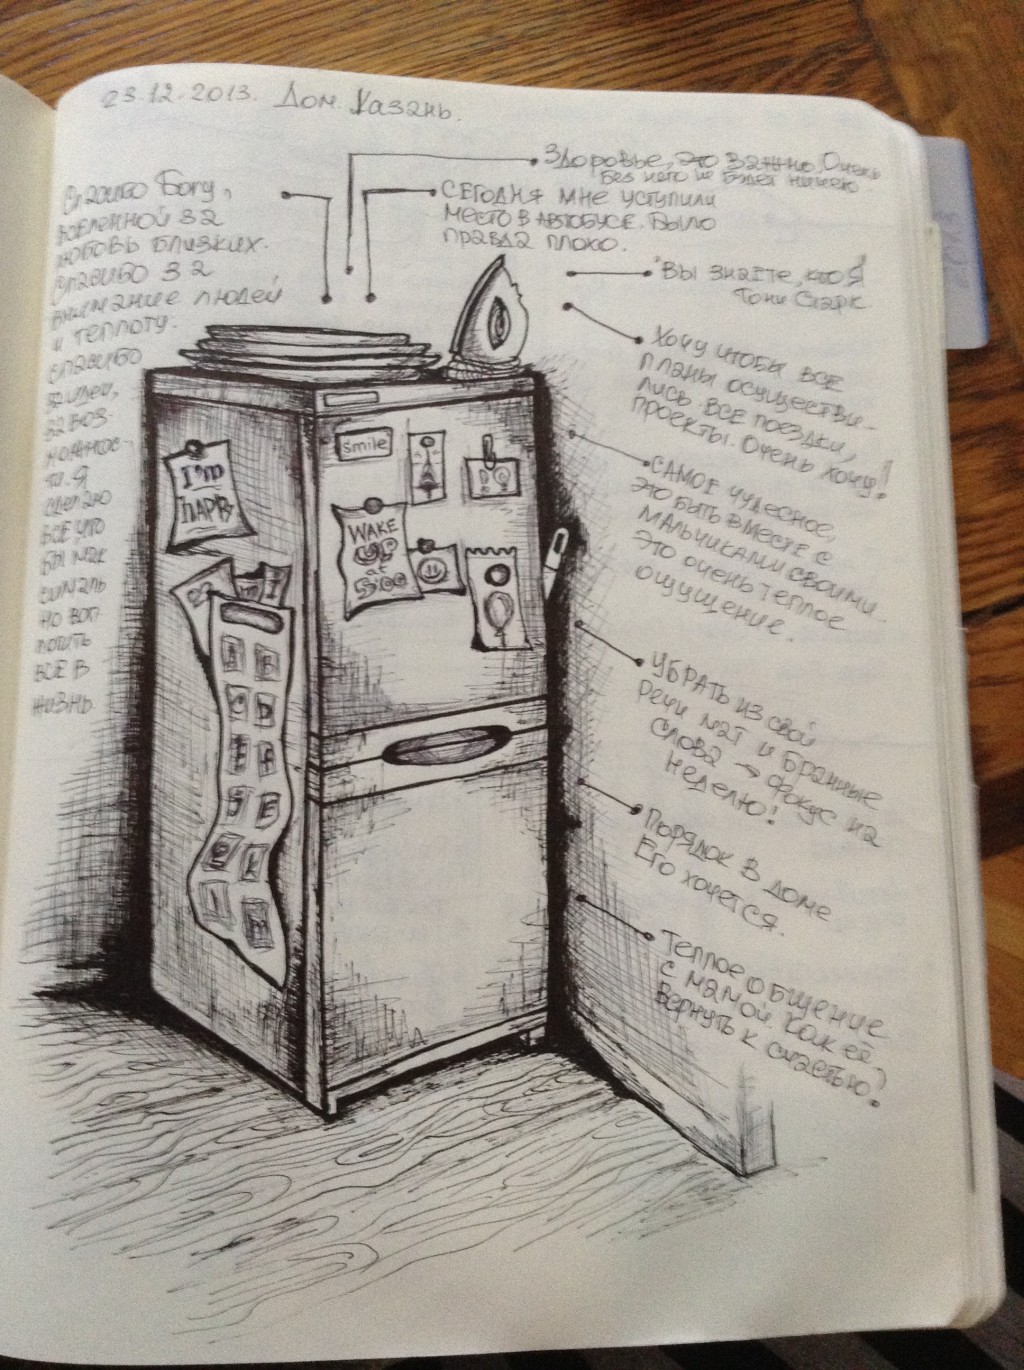 23.12.2013. Дом. Казань.
Здоровье, это важно. Очень
Без него не будет ничего.
СЕГОДНЯ МНЕ УСТУПИЛИ
МЕСТО В АВТОБУСЕ. БЫЛО
ПРАВДА ПЛОХО.
Спасибо Богу,
вселенной за
любовь близких.
Спасибо за
внимание людей
и теплоту.
спасибо
за идеи,
за воз-
можнос-
ти. Я
сделаю
всё что
бы мак
сималь
но воп
лотить
всё в
жизнь.
"Вы знаете, кто Я"
Тони Старк
Хочу чтобы все
планы осуществи-
лись. Все поездки,
проекты. Очень хочу!!
САМОЕ ЧУДЕСНОЕ,
это быть вместе с
мальчиками своими.
Это очень теплое
ощущение.
УБРАТЬ ИЗ СВОЙ
РЕЧИ МАТ И Бранные
слова → Фокус на
неделю!
Порядок в доме
Его хочется.
Теплое общение
с мамой. Как её
вернуть к счастью?
I'm
HAPPY
smile
WAKE
UP
at
5:00
A B
C D
E